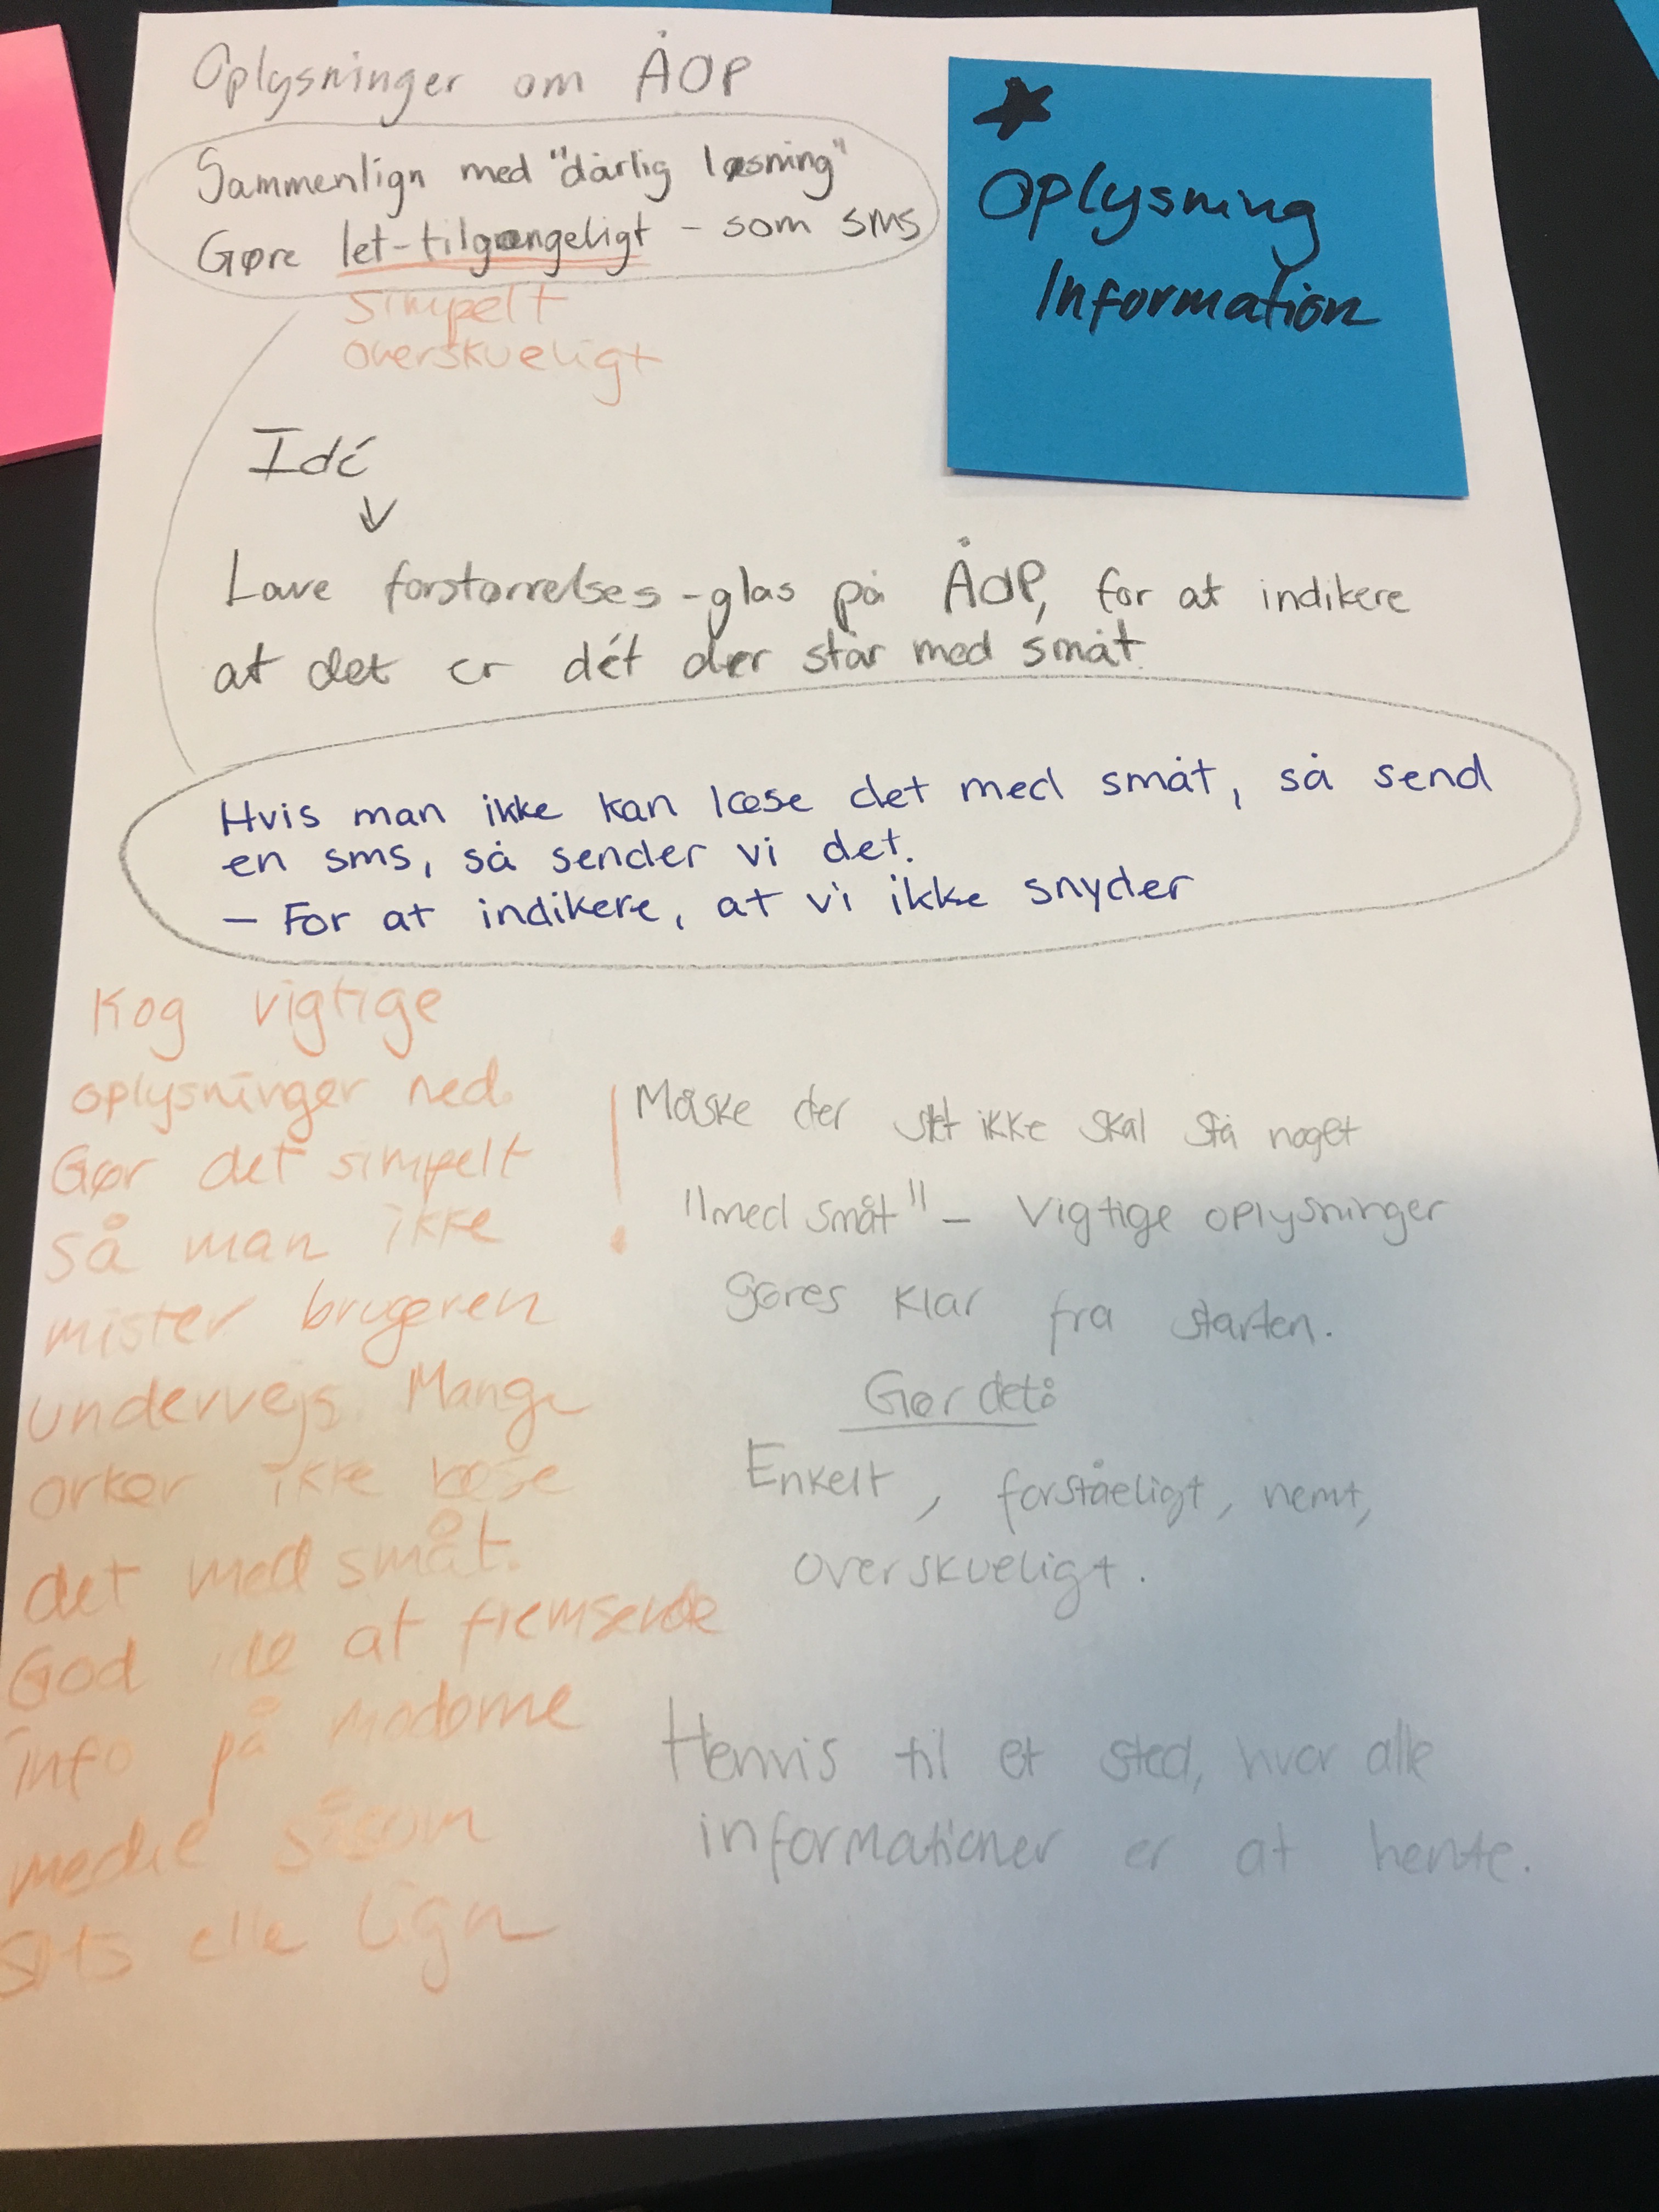 Oplysninger om ÅOP
Sammenlign med "dårlig løsning"
Gøre let-tilgængeligt - som sms
simpelt
overskueligt
Oplysning
Information
Idé
Lave forstørrelses-glas på ÅOP, for at indikere
at det er dét der står med småt.
Hvis man ikke kan læse det med småt, så send
en sms, så sender vi det.
- For at indikere, at vi ikke snyder
Kog vigtige
oplysninger ned.
Gør det simpelt
så man ikke
mister brugeren
undervejs. Mange
orker ikke læse
det med småt.
God ide at fremsende
info på moderne
medie såsom
SMS elle lign
!
Måske der slet ikke skal stå noget
"med småt" - Vigtige oplysninger
gøres klar fra starten.
Gør det:
Enkelt, forståeligt, nemt,
overskueligt.
Henvis til et sted, hvor alle
informationer er at hente.